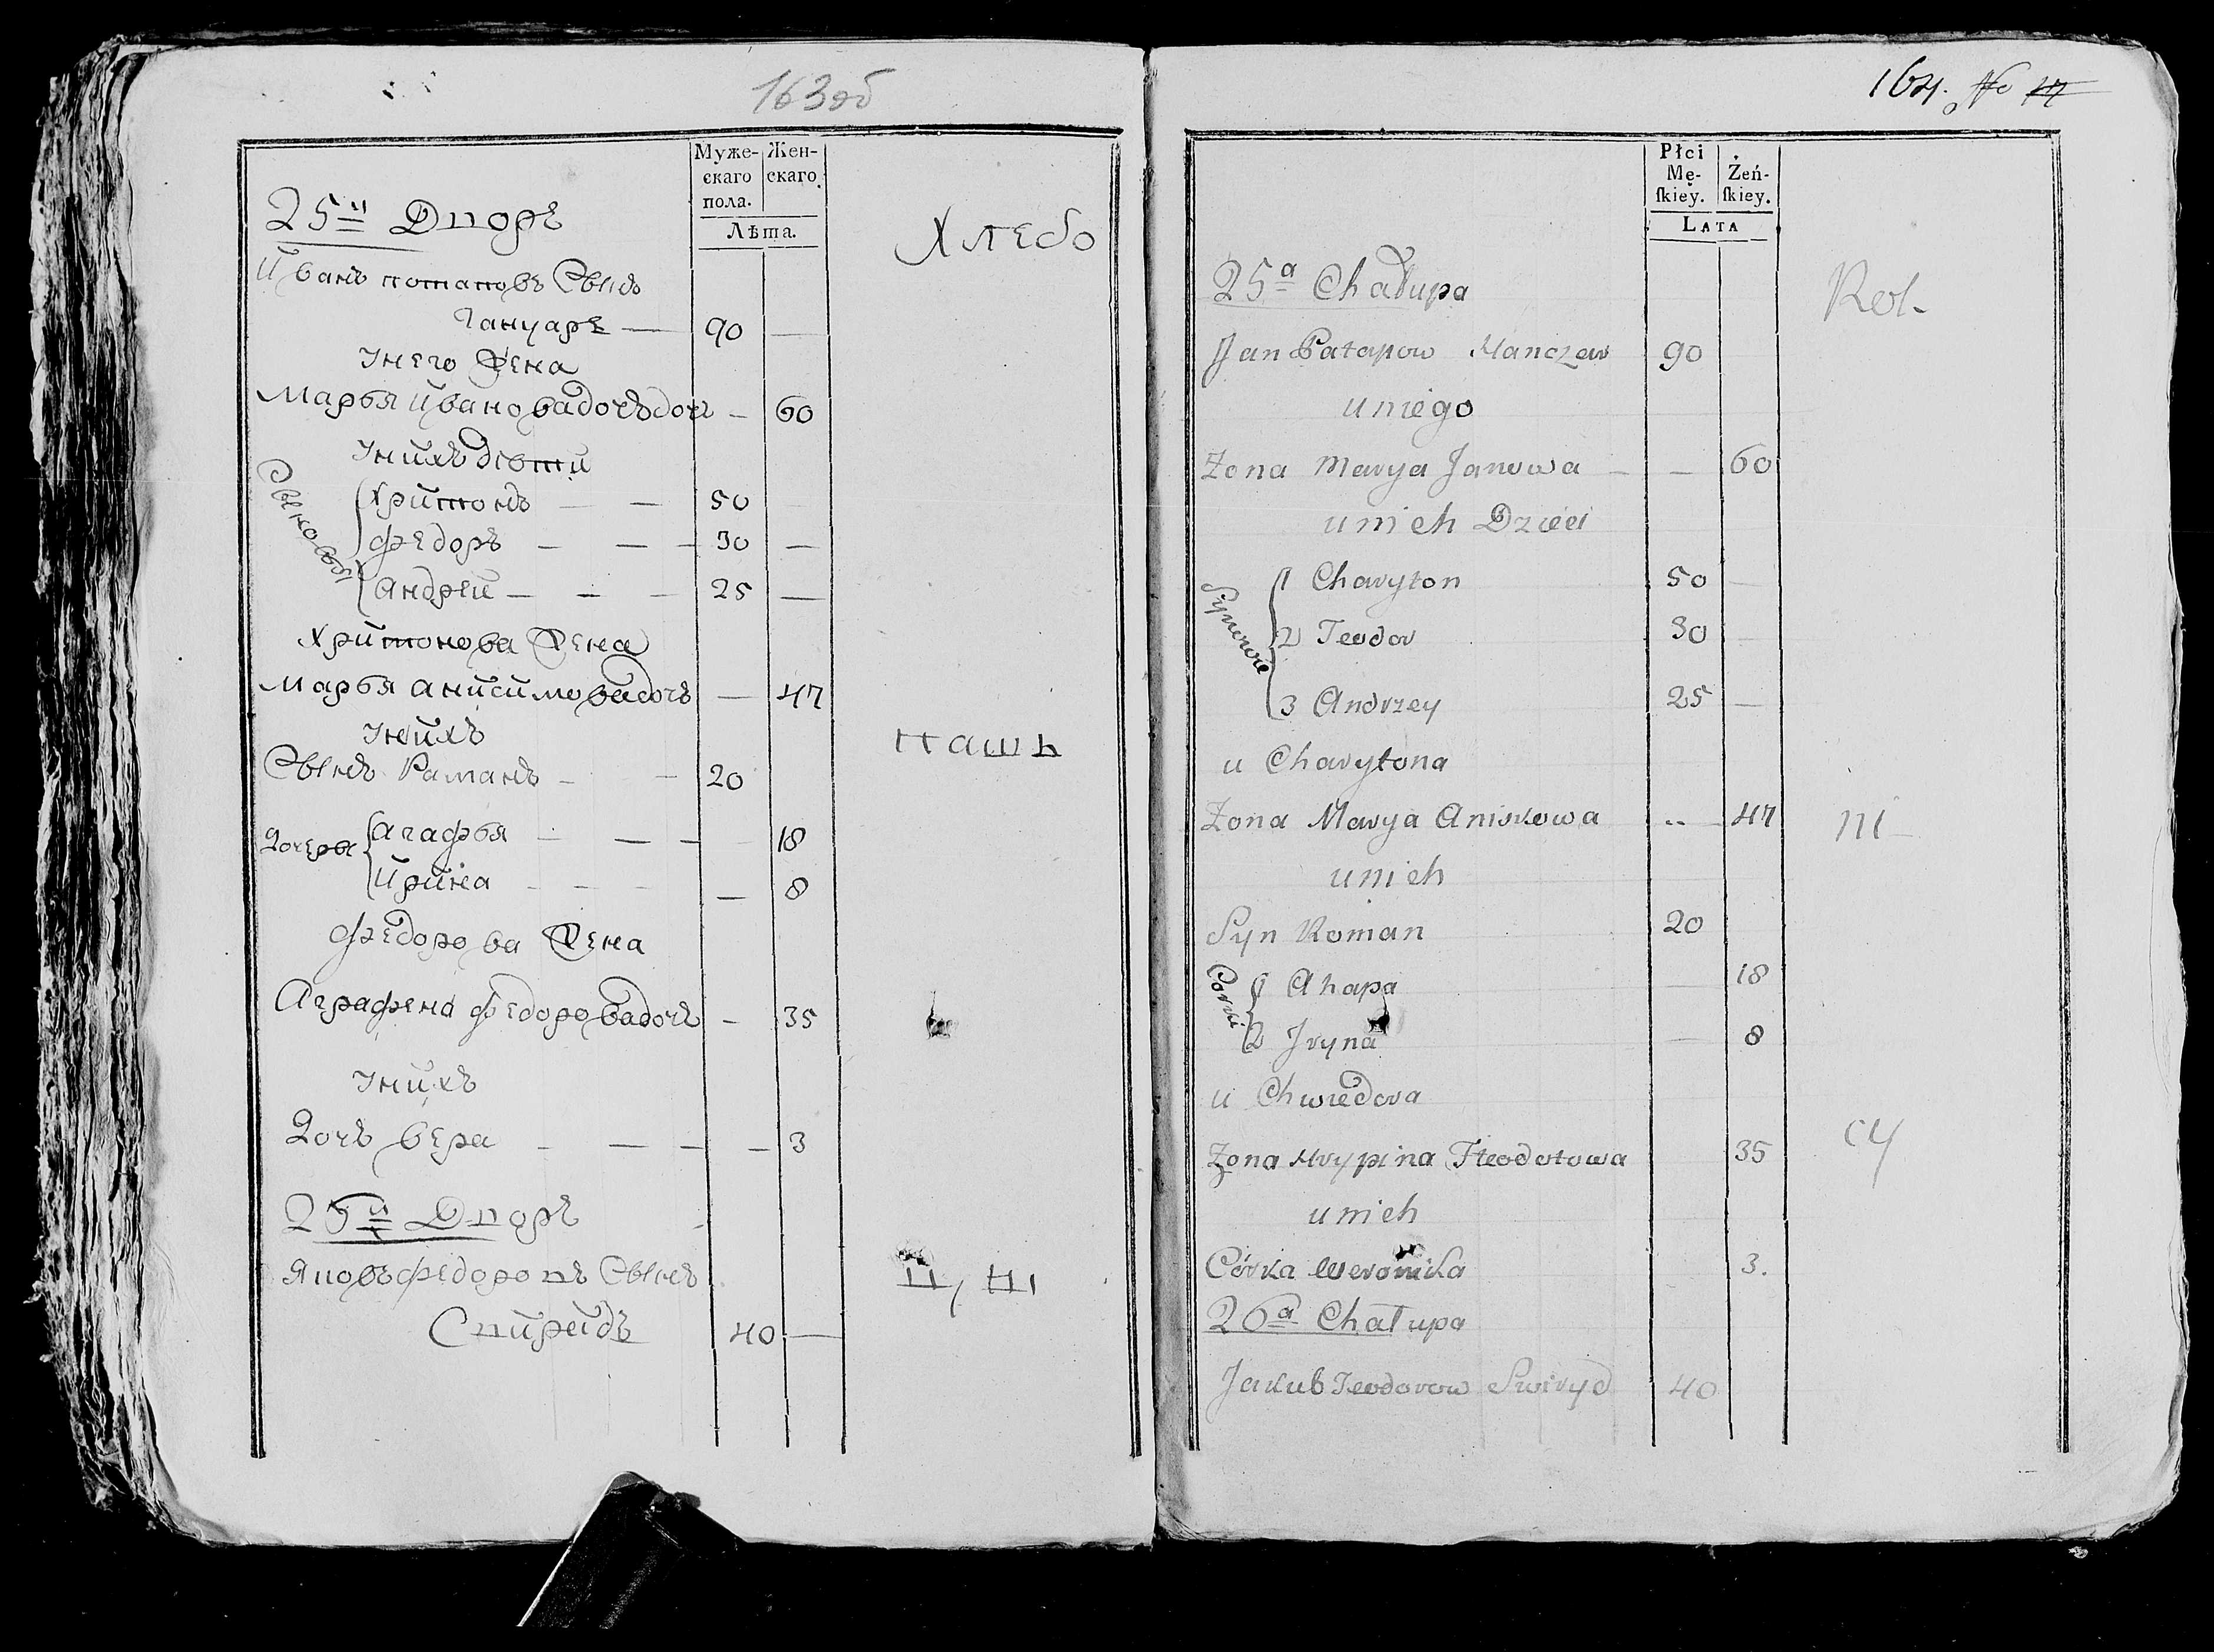 163об
Муже- Жен-
скаго скаго.
пола.
Лѣта.
25й Дпоръ
Хлебо
Иванъ потаповъ Сынъ
Ганчаръ — 90 —
Унего Жена
Марья Иванова дочъ — 60
Унихъ дѣти
Сыновья
Хритонъ — — 50
Федоръ — — — 30 —
Андрей — — — 25 —
Хритонова Жена
Марья анисимова дочъ — 47
Унихъ
пашъ
Сынъ Раманъ — — 20
Дочеры
Агафья — — — 18
Ирина — — — — 8
Федорова Жена
Аграфена Федорова дочъ — 35
Унихъ
Дочъ вера — — — — 3
Дпоръ
цы
Яковъ федоропъ Сынъ
Спиридъ 40 —
164. No 17
Płci
Mę- Żeń-
ſkiey. ſkiey.
LATA
25a Chałupa
Rol-
Jan Patapow Hanczar 90
u niego
Zona Marya Janowa — — 60
u nich Dzieci
Synowie
1 Charyton 50 —
2 Teodor 30 —
3 Andrzey 25 —
u Charytona
Zona Marya Aniskowa -- 47
ni-
u nich
Syn Roman 20
Corki
1 Ahapa 18
2 Jryna 8
u Chwiedora
cy
Zona Hrypina Fteodotowa 35
u nich
Córka Weronika 3.
26a Chałupa
Jakub Teodorow Swiryd 40